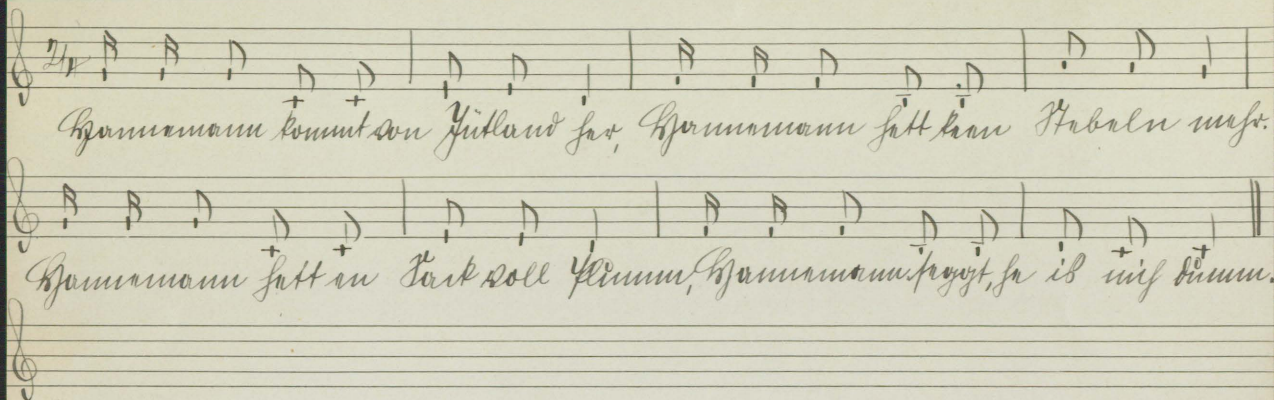 2/4
Hannemann kommt von Jütland her, Hannemann hett keen Stebeln mehr.
Hannemann hett en Sack voll Plumm, Hannemann seggt, he is nich dumm.